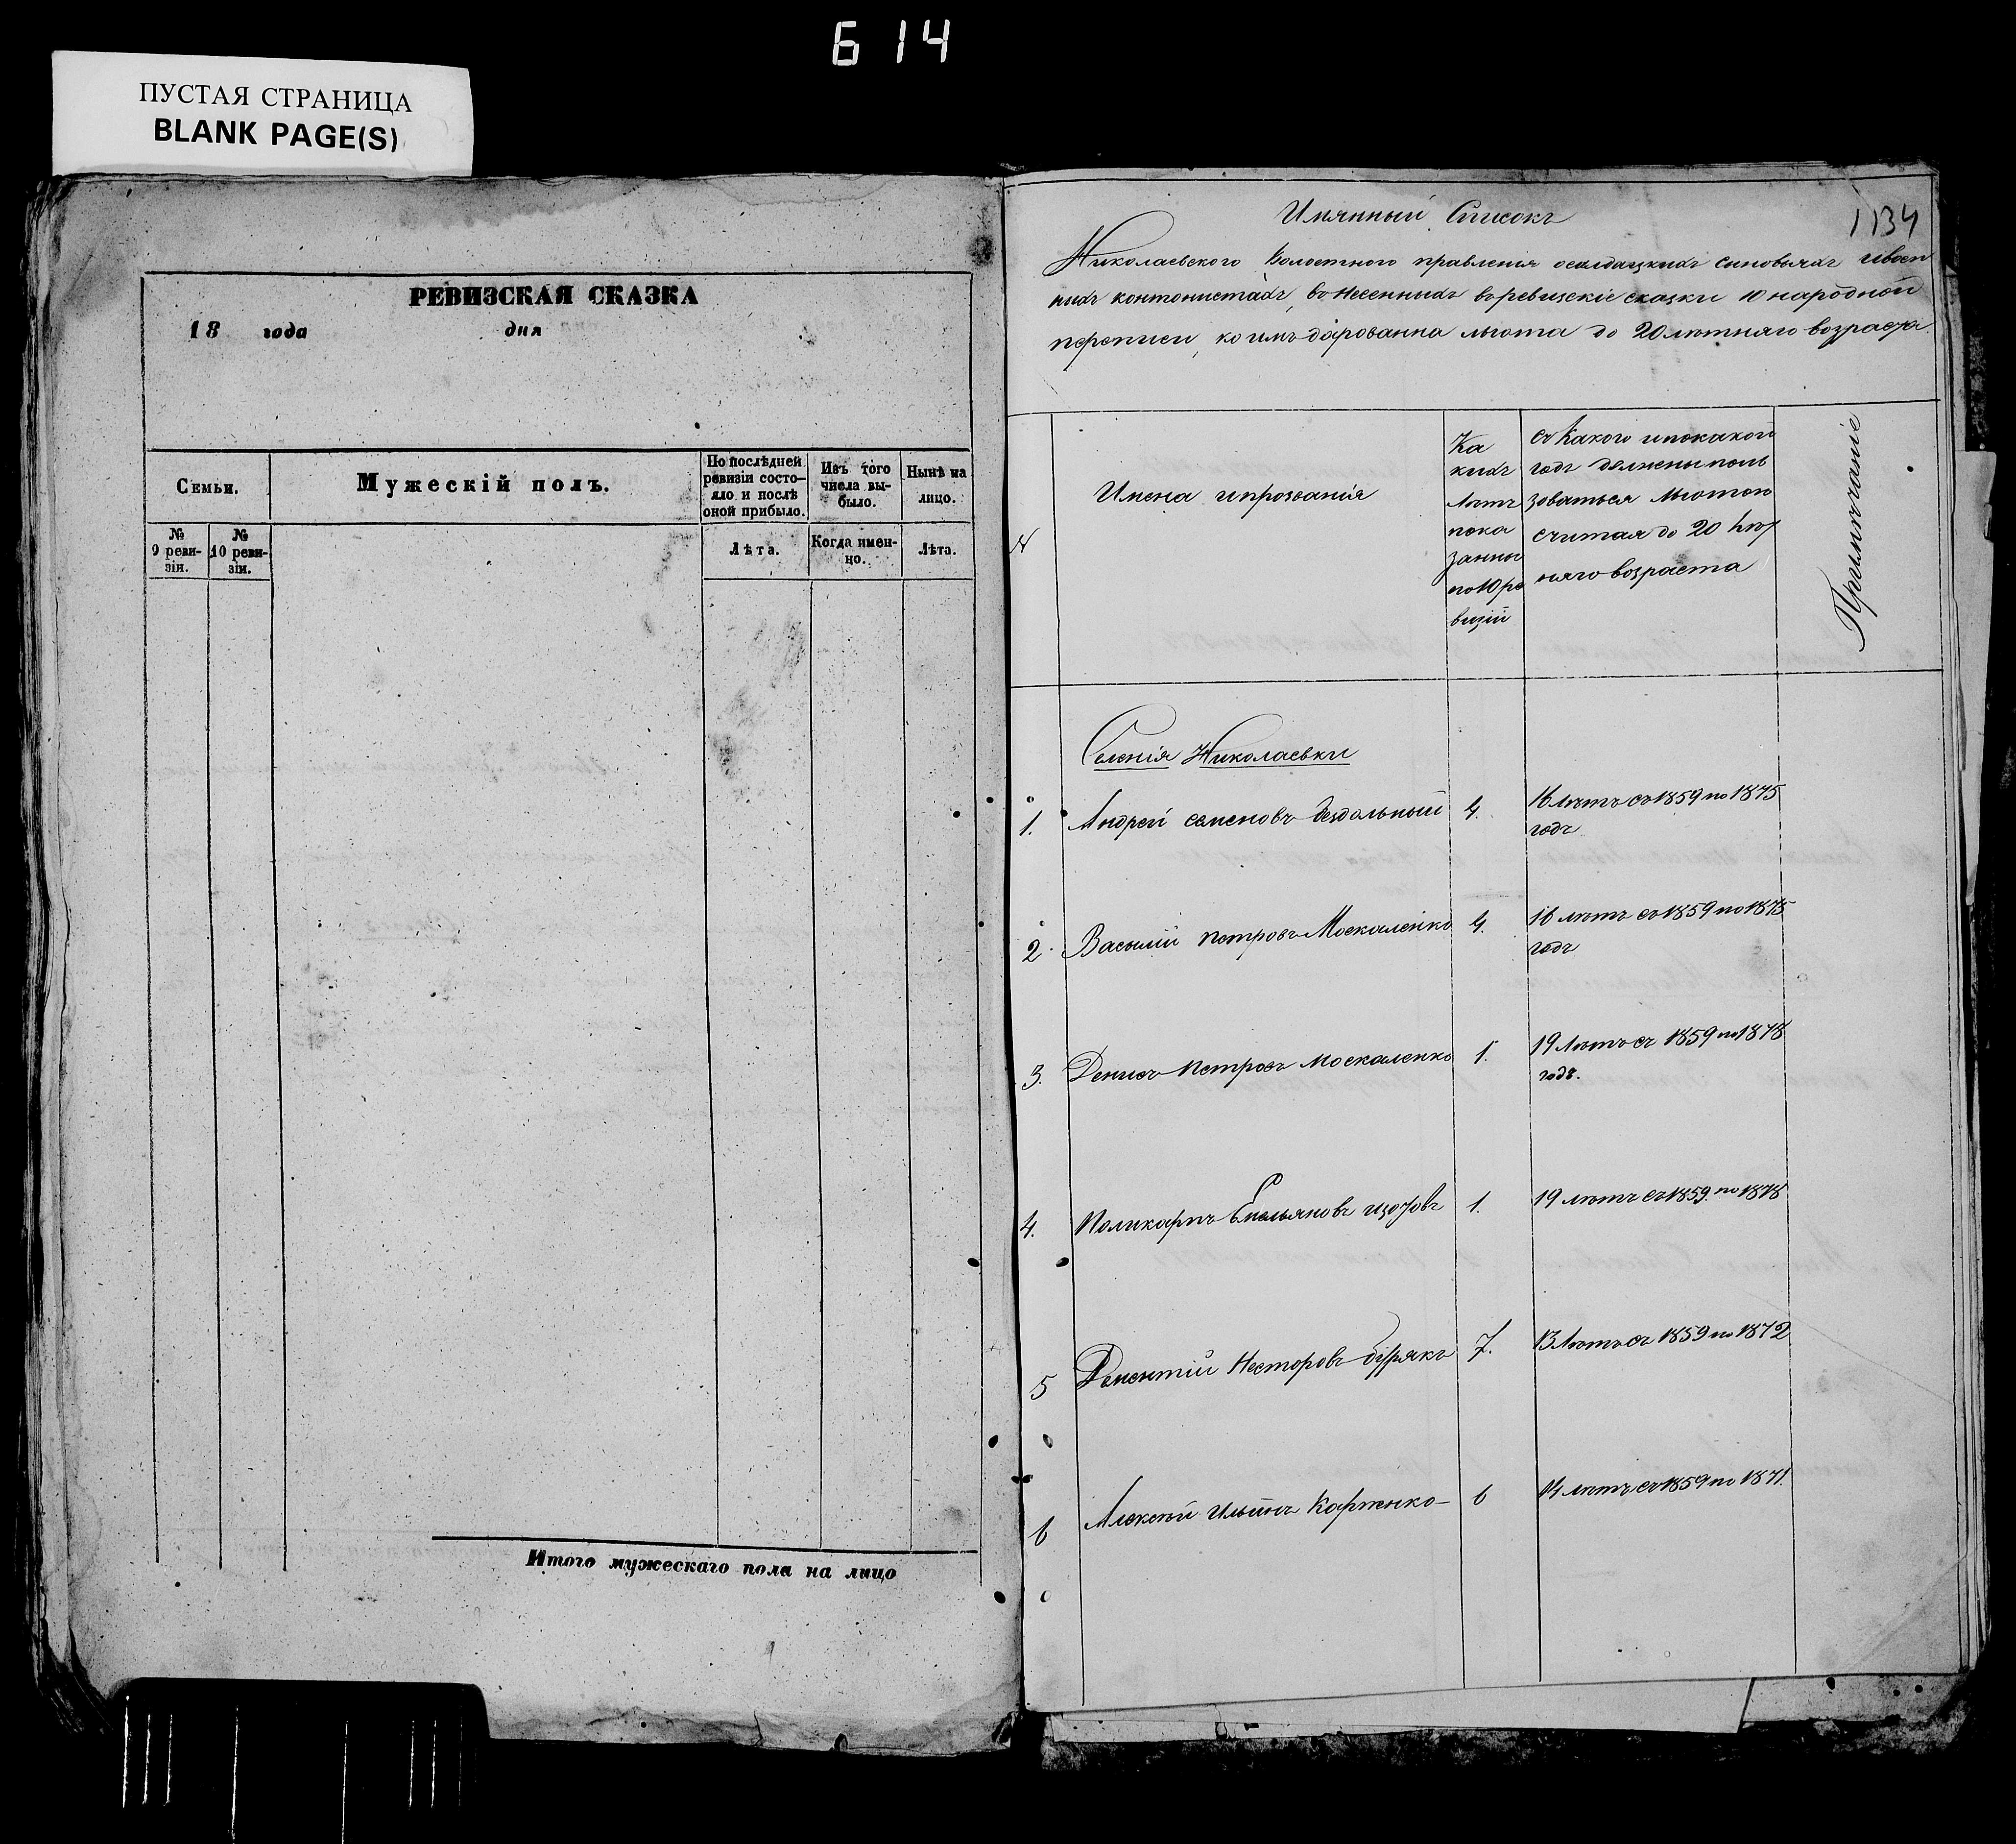 614
ПУСТАЯ СТРАНИЦА
BLANK PAGE(S)
РЕВИЗСКАЯ СКАЗКА
18 года дня
Семьи.
Мужескій полъ.
По послѣдней ревизіи состо-
яло и послѣ
оной прибыло.
Изъ того
числа вы-
было.
Нынѣ на
лицо.
№
9 реви-
зіи.
№
10 реви-
зіи.
Лѣта.
Когда имен-
но.
Лѣта.
Итого мужескаго пола на лицо
1134
Имянный Списокъ
Николаевского Волостного правленія осалдацкихъ синовьяхъ ивоен
ныхъ контонистахъ, внесенныхъ вревизскіе сказки 10 народной
переписи, коимъ дарованна льгота до 20 лѣтняго возраста
N
Имена ипрозванія
Ка
кихъ
лѣтъ
пока
занны
по 10 ре
визіи
съ Какого ипокакой
годъ должены поль
зоваться льготою
считая до 20 лѣт
няго возраста
Примѣчаніе
Селенія Николаевки
1. Андрей семеновъ бездольный 4. 16 лѣтъ съ 1859 по 1875
годъ
2. Васылій петровъ Москаленко 4. 16 лѣтъ съ 1859 по 1875
годъ
3. Денисъ петровъ москаленко 1. 19 лѣтъ съ 1859 по 1878
годъ.
4. Поликарпъ Емельяновъ изотовъ 1. 19 лѣтъ съ 1859 по 1878
5 Дементій Несторовъ бурякъ 7. 13 лѣтъ съ 1859 по 1872
6 Алексѣй Ильинъ Карпенко 6 14 лѣтъ съ 1859 по 1871.